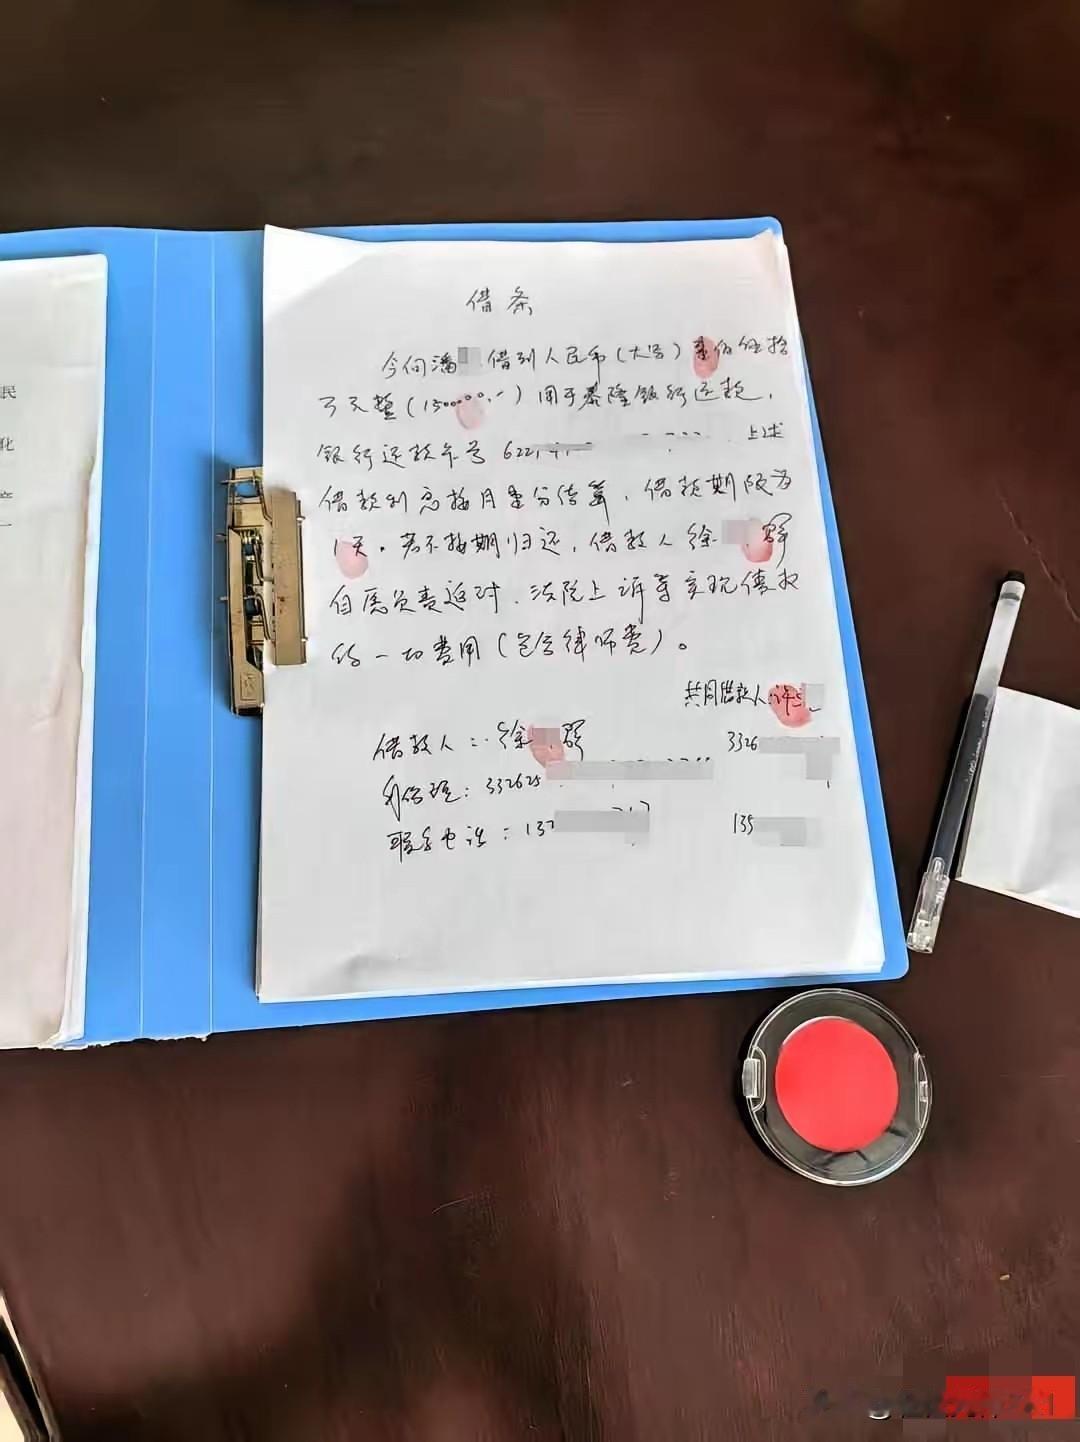 民
化
借条
今向潘 借到人民币(大写)壹佰伍拾
万元整(1500000.-)用于泰隆银行还款,
银行还款卡号622 上述
借款利息按月壹分结算,借款期限为
1天。若不按期归还,借款人徐
自愿负责追讨、法院上诉等实现债权
的一切费用(包含律师费)。
共同借款人:许
借款人:徐 3326
身份证:332625
联系电话:137 135